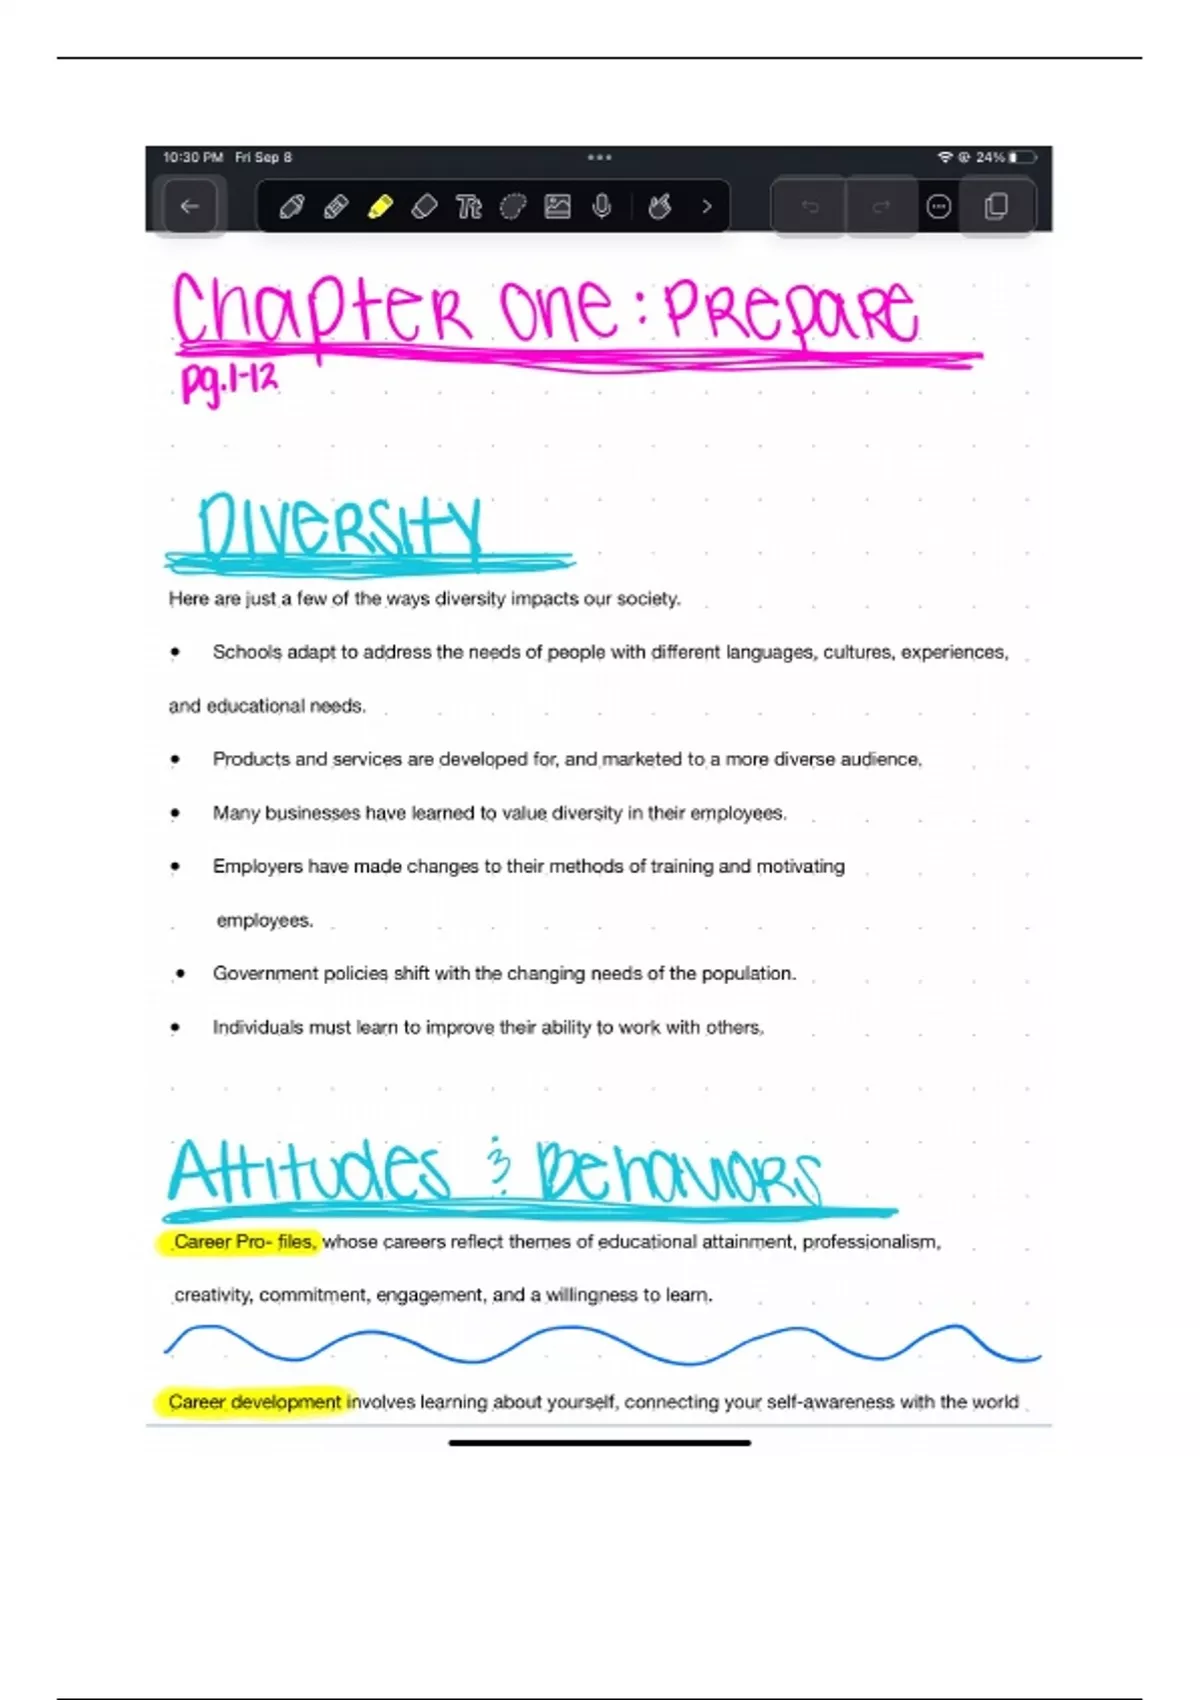 10:30 PM Fri Sep 8
24%
Chapter One: Prepare
pg.1-12
Diversity
Here are just a few of the ways diversity impacts our society.
• Schools adapt to address the needs of people with different languages, cultures, experiences,
and educational needs.
• Products and services are developed for, and marketed to a more diverse audience.
• Many businesses have learned to value diversity in their employees.
• Employers have made changes to their methods of training and motivating
employees.
• Government policies shift with the changing needs of the population.
• Individuals must learn to improve their ability to work with others.
Attitudes & Behaviors
Career Pro- files, whose careers reflect themes of educational attainment, professionalism,
creativity, commitment, engagement, and a willingness to learn.
Career development involves learning about yourself, connecting your self-awareness with the world